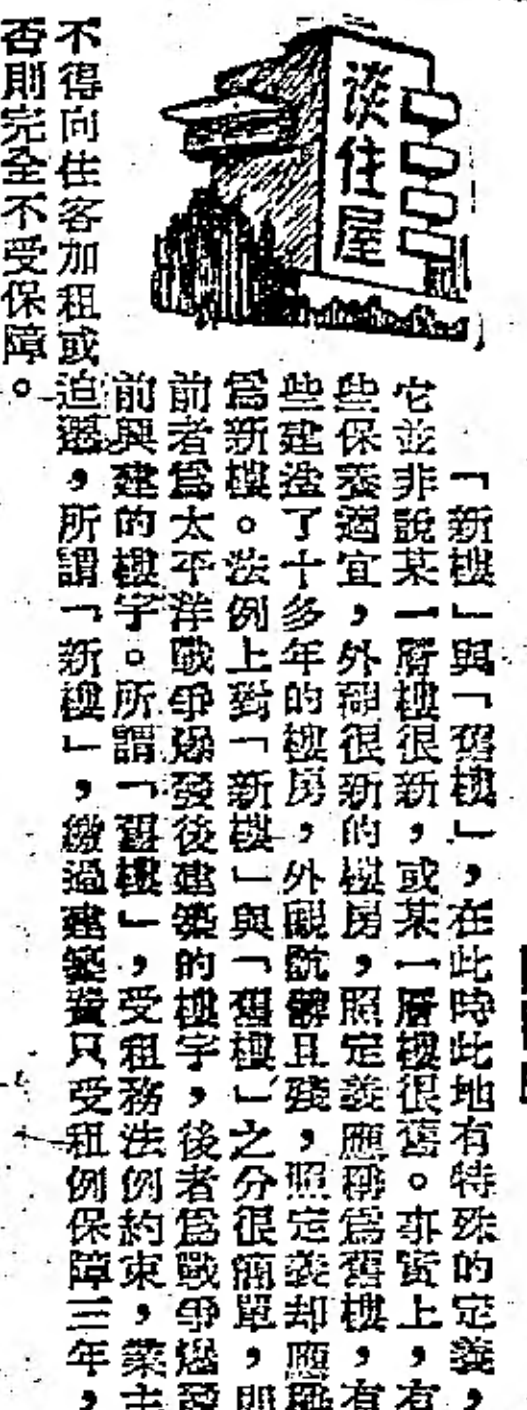 談住屋
「新樓」與「舊樓」，在此時此地有特殊的定義，
它並非說某一層樓很新，或某一層樓很舊。事實上，有
些保養適宜，外牆很新的樓房，照定義應稱爲舊樓，有
些建造了十多年的樓房，外觀骯髒且殘，照定義却應稱
爲新樓。法例上對「新樓」與「舊樓」之分很簡單，即
前者爲太平洋戰爭爆發後建築的樓宇，後者爲戰爭爆發
前興建的樓宇。所謂「舊樓」，受租務法例約束，業主
不得向住客加租或迫遷，所謂「新樓」，繳過建築費只受租例保障三年，
否則完全不受保障。